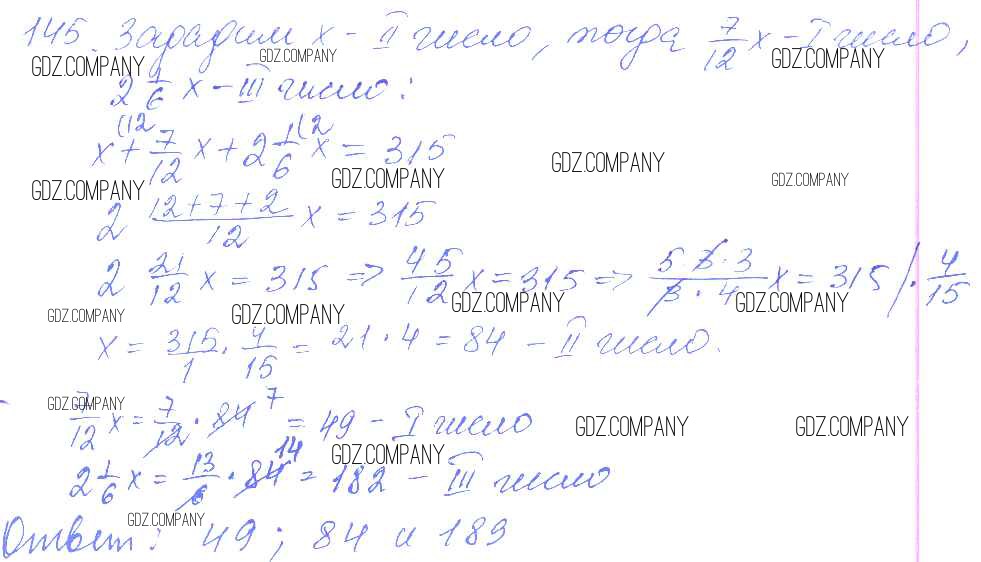 145. Зададим x - II число, тогда 7/12 x - I число,
GDZ.COMPANY GDZ.COMPANY GDZ.COMPANY
2 1/6 x - III число:
x + 7/12 x (12 + 2 1/6 (2 x = 315
GDZ.COMPANY GDZ.COMPANY GDZ.COMPANY GDZ.COMPANY
2 (12+7+2)/12 x = 315
2 21/12 x = 315 => 45/12 x = 315 => (5·3·3)/(3·4) x = 315 / · 4/15
GDZ.COMPANY GDZ.COMPANY GDZ.COMPANY GDZ.COMPANY
x = 315/1 · 4/15 = 21 · 4 = 84 - II число.
GDZ.COMPANY
7/12 x = 7/12 · 84 7 = 49 - I число
GDZ.COMPANY GDZ.COMPANY GDZ.COMPANY
2 1/6 x = 13/6 · 84 14 = 182 - III число
GDZ.COMPANY
Ответ: 49; 84 и 189